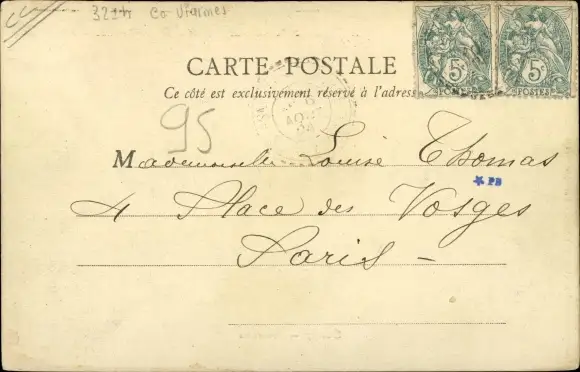 3214 Co Viarmes
5c 5c
POSTES POSTES
CARTE POSTALE
Ce côté est exclusivement réservé à l'adresse
95
Mademoiselle Louise Thomas
PB
4 Place des Vosges
Paris -